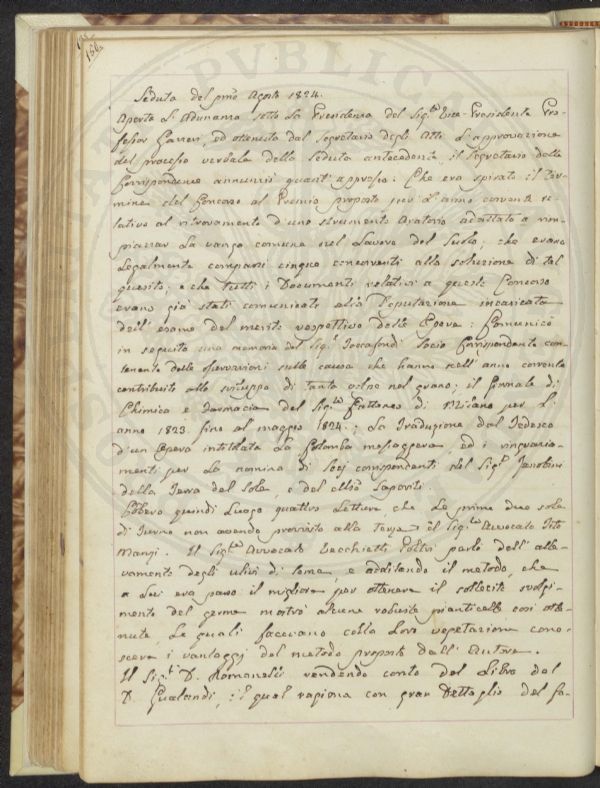 156.
Seduta del pmo Agosto 1824.
Aperta L'Adunanza sotto la Presidenza del Sigr. Vice-Presidente Pro-
fessor Gazzeri, ed ottenuta dal Segretario degli Atti L'approvazione
del processo verbale della seduta antecedente, il Segretario delle
Corrispondenze annunziò quant'appresso: Che era spirato il ter-
mine del Concorso al Premio proposto per l'anno corrente re-
lativo al ritrovamento d'uno strumento Aratorio adattato a rim-
piazzar La vanga comune nel Lavoro del Suolo; che erano
Legalmente comparsi cinque concorrenti alla soluzione di tal
quesito, e che tutti i Documenti relativi a questo Concorso
erano già stati comunicati alla Deputazione incaricata
dell'esame del merito respettivo delle Opere: Comunicò
in seguito una memoria del Sigr. Toccafondi Socio Corrispondente con-
tenente delle osservazioni sulle cause che hanno nell'anno corrente
contribuito allo sviluppo di tanta volpe nel grano; il Giornale di
Chimica e Farmacia del Sigr. Cattaneo di Milano per L'
anno 1823. fino al maggio 1824.; La Traduzione dal Tedesco
d'un Opera intitolata La Colomba messaggera, ed i ringrazia-
menti per La nomina di Socj corrispondenti del Sigr.
della Terra del Sole, e del Saporiti.
Ebbero quindi Luogo quattro Letture, che Le prime due sole
di Turno non avendo provvisto alla Terza il Sigr. Avvocato Tito
Manzi. Il Sigr. Avvocato Vecchietti Poltri parlò dell'alle-
vamento degli ulivi di seme, e additando il metodo, che
a Lui era parso il migliore per ottenere il sollecito svilup-
mento del germe mostrò alcune robuste pianticelle così otte-
nute, Le quali facevano colla Loro vegetazione cono-
scere i vantaggi del metodo proposto dall'Autore.
Il Sigr. D. Romanelli rendendo conto del Libro del
D. Gualandi, il qual ragiona con gran Dettaglio del fa-